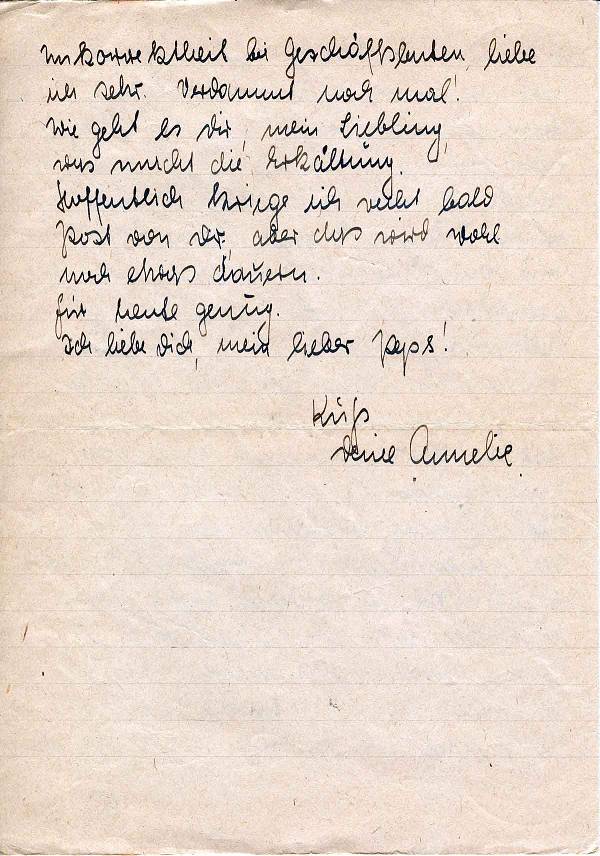 Inkorrektheit bei Geschäftsleuten, liebe
ich sehr. Verdammt noch mal!
Wie geht es Dir, mein Liebling,
was macht die Erkältung.
Hoffentlich kriege ich recht bald
Post von Dir, aber das wird wohl
noch etwas dauern.
Für heute genug.
Ich liebe Dich, mein lieber Peps!
Kuß
Deine Annelie.